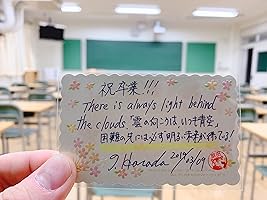 祝卒業!!!
There is always light behind
the clouds「雲の向こうは、いつも青空」
困難の先には必ず明るい未来が待ってる!
J Harada 2019/03/09